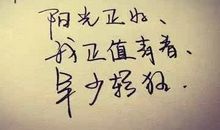 阳光正好、
我正值青春、
年少轻狂.